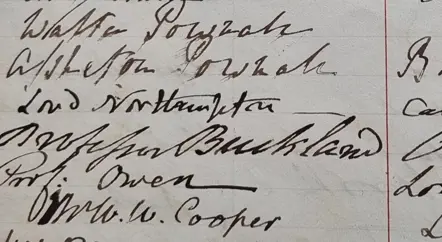 Walter Pownall
Assheton Pownall
Lord Northampton
Professor Buckland
Prof. Owen
Mr W. W. Cooper